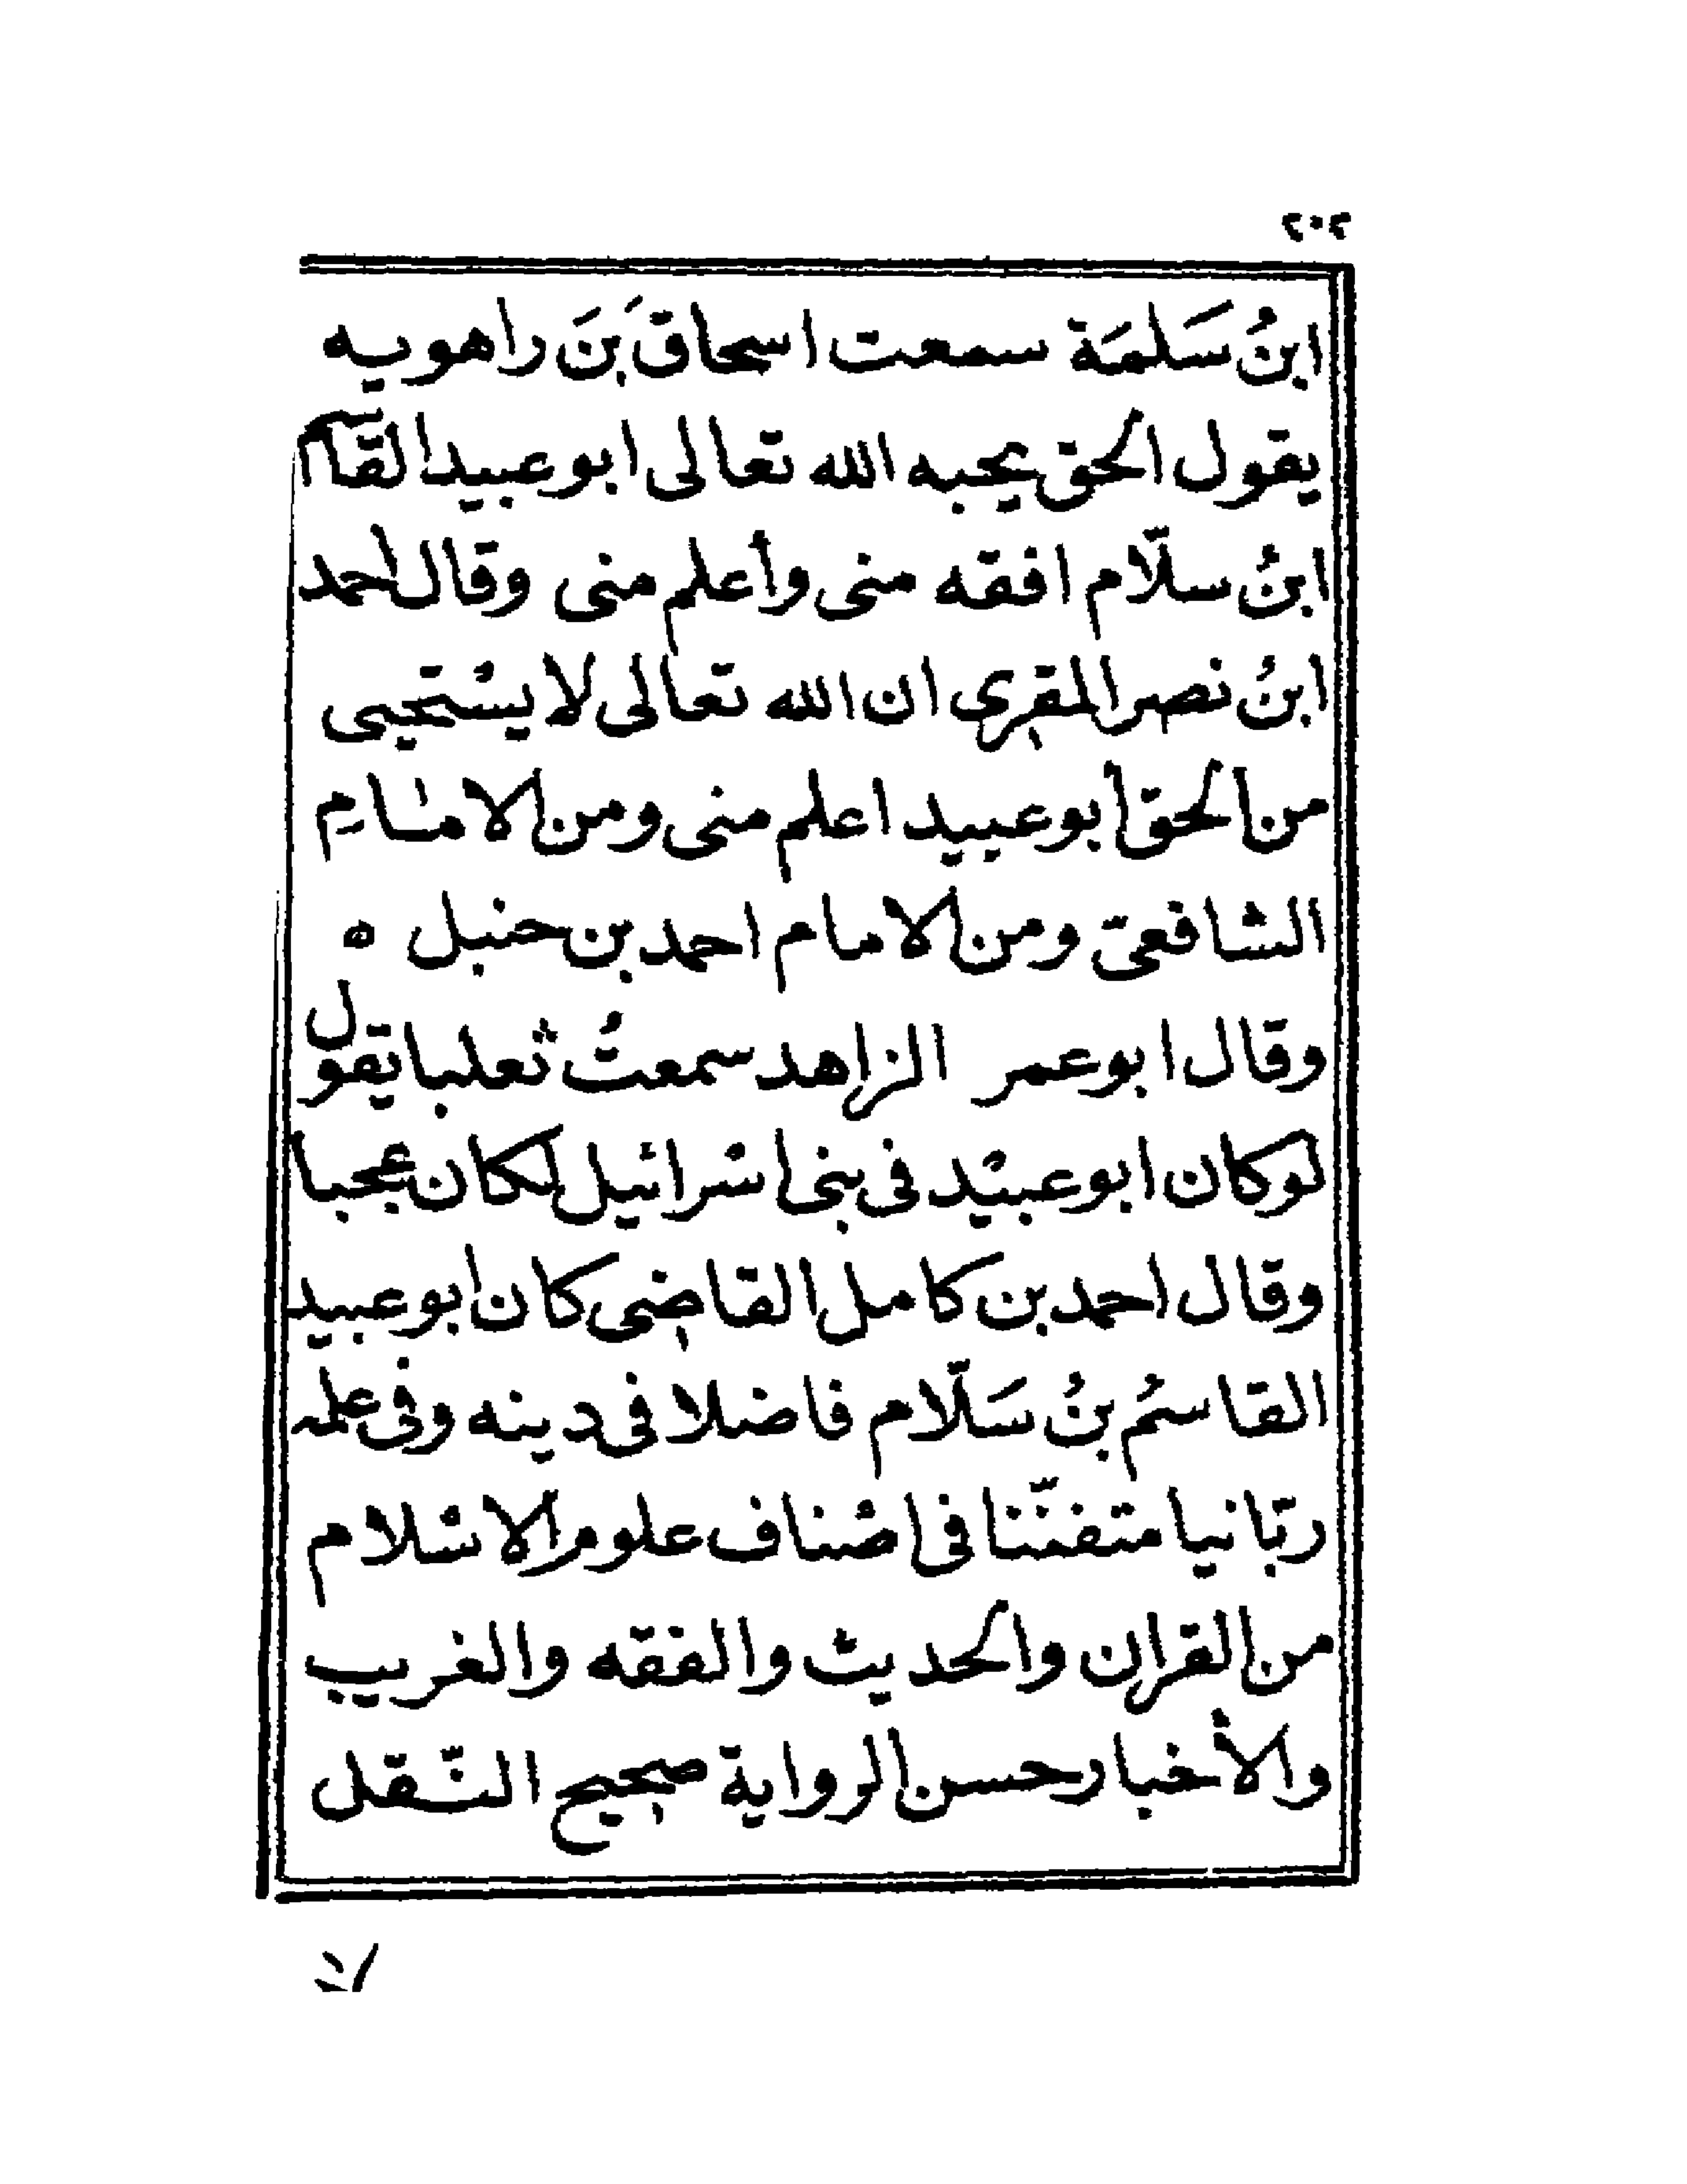 ٢٠٢
ابنُ سَلَمَة سمعت اسحاقَ بنَ راهويه
يقول الحق يحبه الله تعالى ابو عبيد القاسم
ابنُ سلّام افقه منى وأعلم منى وقال احمد
ابنُ نصر المقرى ان الله تعالى لا يستحيى
من الحق ابو عبيد اعلم منى ومن الامامِ
الشافعىّ ومن الامام احمد بن حنبل ه
وقال ابو عمر الزاهد سمعتُ ثعلبا يقول
لو كان ابو عبيد فى بنى اسرائيل لكان عجبا
وقال احمد بن كامل القاضى كان ابو عبيد
القاسمُ بنُ سَلّام فاضلا فى دينه وفى علمه
ربّانيا متفنّنا فى اصناف علوم الاسلام
من القران والحديث والفقه والغريب
والأخبار حسن الرواية صحيح النّقل